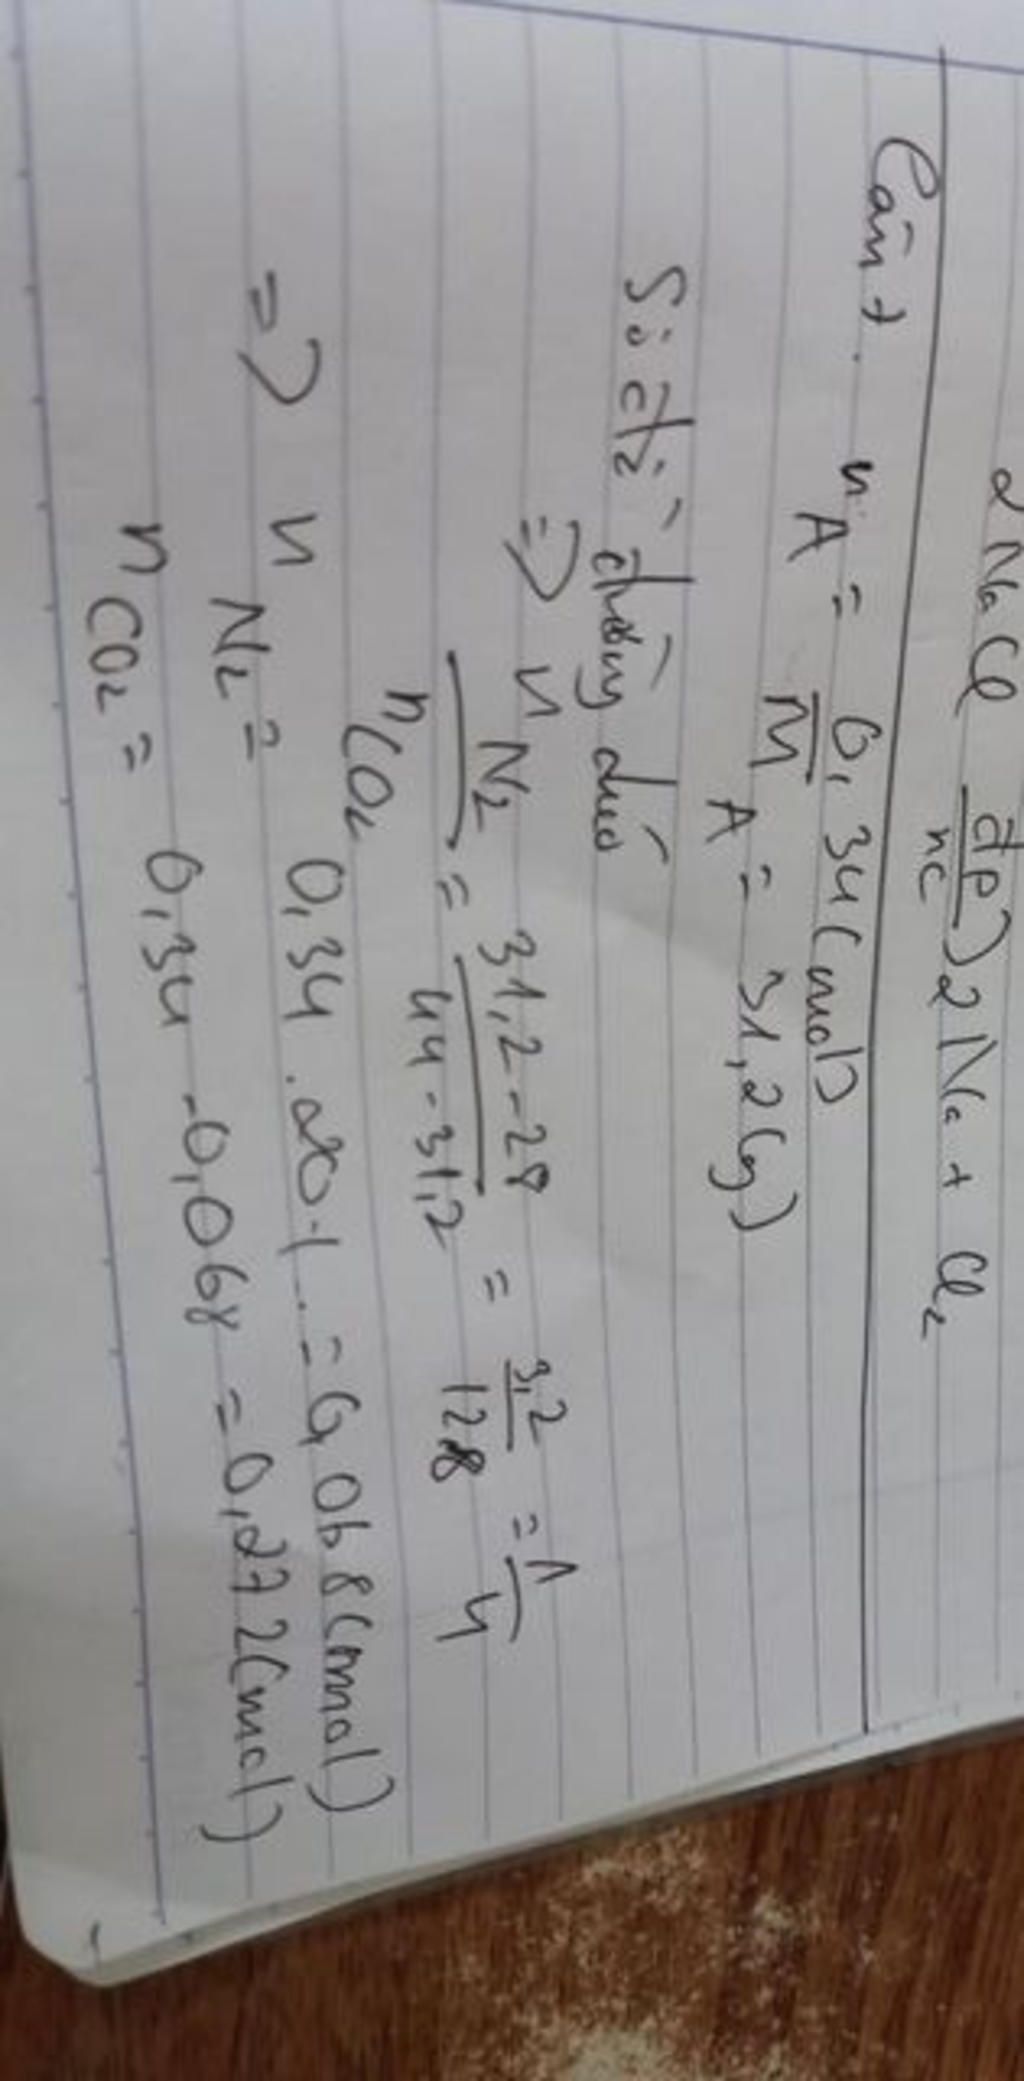 2NaCl đp/nc > 2Na + Cl₂
Câu 7. n A = 0,34 (mol)
M̄ A = 31,2 (g)
Sơ đồ đường chéo
=> n N₂ / n CO₂ = 31,2-28 / 44-31,2 = 3,2 / 128 = 1/4
=> n N₂ = 0,34 . 20% = 0,068 (mol)
n CO₂ = 0,34 - 0,068 = 0,272 (mol)